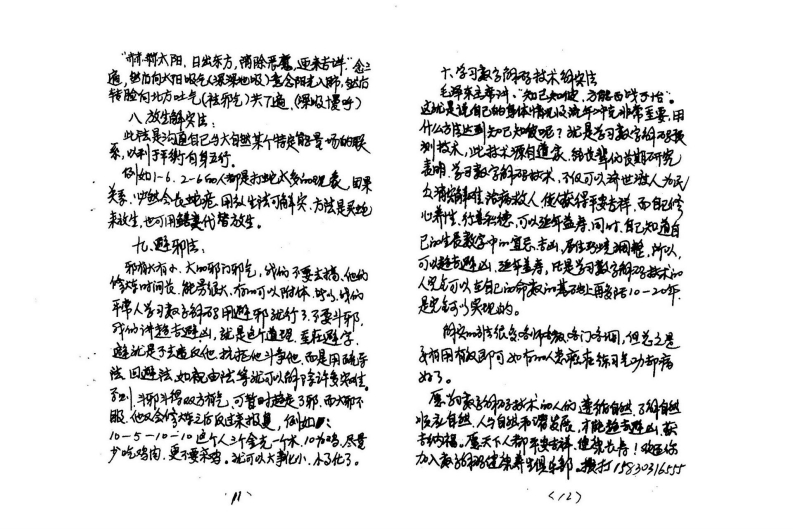 "赫赫太阳，日出东方，消除恶魔，迎来吉祥"念三
遍，然后向太阳吸气(深深地吸)意念阳光入肺，然后
转脸向北方吐气(祛邪气)共7遍，(深吸慢呼)
八、放生解灾法：
此法是沟通自己与大自然某个特定能量场的联
系，以利于平衡自身五行。
例如1-6、2-6的人都是打蛇太多的现表，因果
关系，必然会长蛇疮，用放生法可解灾，方法是买蛇
来放生，也可用鳝来代替放生。
九、避邪法：
邪有大有小，大的邪门邪气，我们不要去搞，他们
修炼时间长，能量很大，有的可以附体，所以，我们
平常人学习数字解码用避邪就行了，不要斗邪，
我们讲趋吉避凶，就是这个道理，重在避字，
避就是不去惹反他，抗拒他斗争他，而是用疏导
法，回避法，如祝由法等就可以的解除许多灾难。
否则，斗邪斗得双方有气，可暂时赶走了邪，而大邪不
服，他又会修炼之后反过来报复，例如：
10-5-10-10这个人三个金克一个木，10为鸡，尽量
少吃鸡肉，更不要杀鸡。就可以大事化小，小了化了。
11
十、学习数字解码技术解灾法
毛泽东主席讲，"知己知彼，方能百战不怠"。
这就是说自己的身体情况及流年时院非常重要，用
什么方法达到知己知彼呢？就是学习数字解码预
测技术，此技术源自道家，经我辈的长期研究
表明，学习数字解码技术，不仅可以济世渡人为民
众消灾解难，治病救人，使人获得平安吉祥，而自己修
心养生，行善积德，可以延年益寿，同时，自己知道自
己的生辰数字中的宜忌、吉凶，居住环境调整，所以，
可以趋吉避凶，延年益寿，凡是学习数字解码技术的
人完全可以在自己的命数的基础上再多活10-20年，
是完全可以实现的。
解灾的方法很多，各师各教，各门各洞，但总之是
予相用有效即可，如有的人患病，来练习气功却病
好了。
愿学习数字解码技术的人们，遵循自然，了解自然
顺应自然，人与自然和谐发展，才能趋吉避凶，获
吉纳福。愿天下人都平安吉祥，健康长寿！欢迎你
加入数字解码健康养生俱乐部。拨打15830316555
(12)